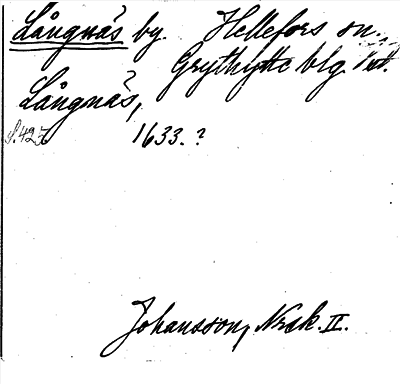 Långnäs by. Hellefors sn.,
Grythytte blg.
Långnäs,
S. 427 1633.?
Johansson, Nrsk. II.